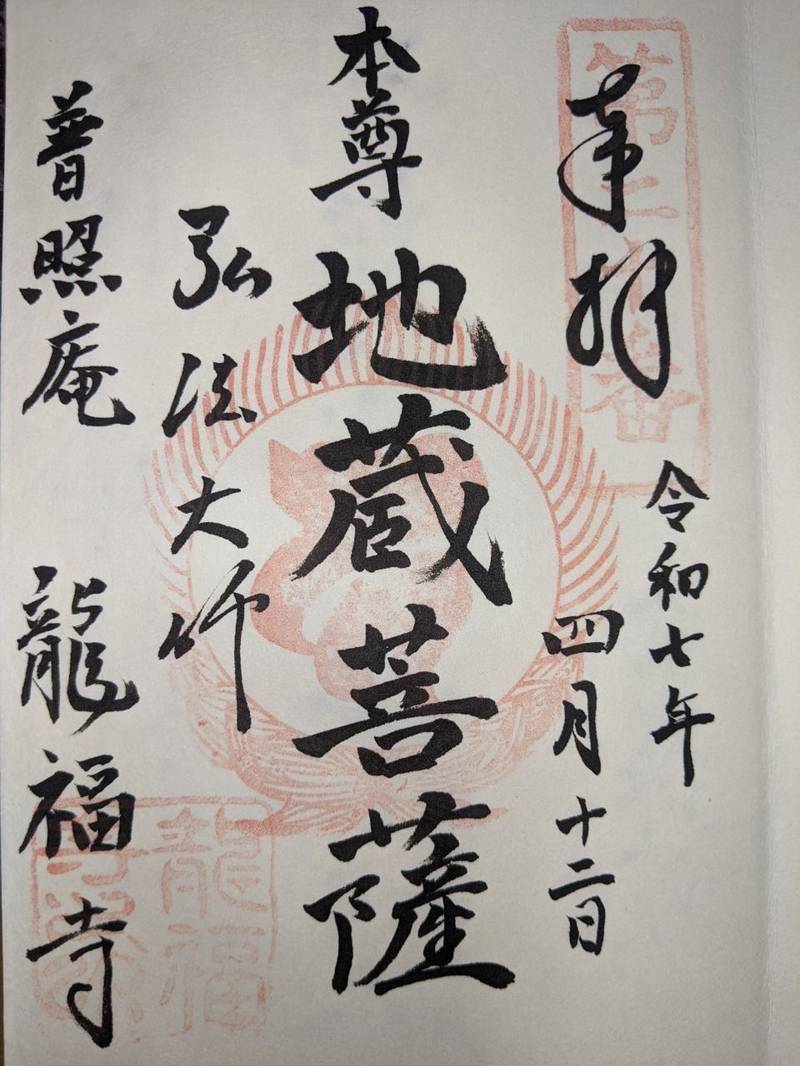 奉拝
令和七年
四月十二日
本尊 地蔵菩薩
弘法大師
普照庵 龍福寺
第二 番
龍福